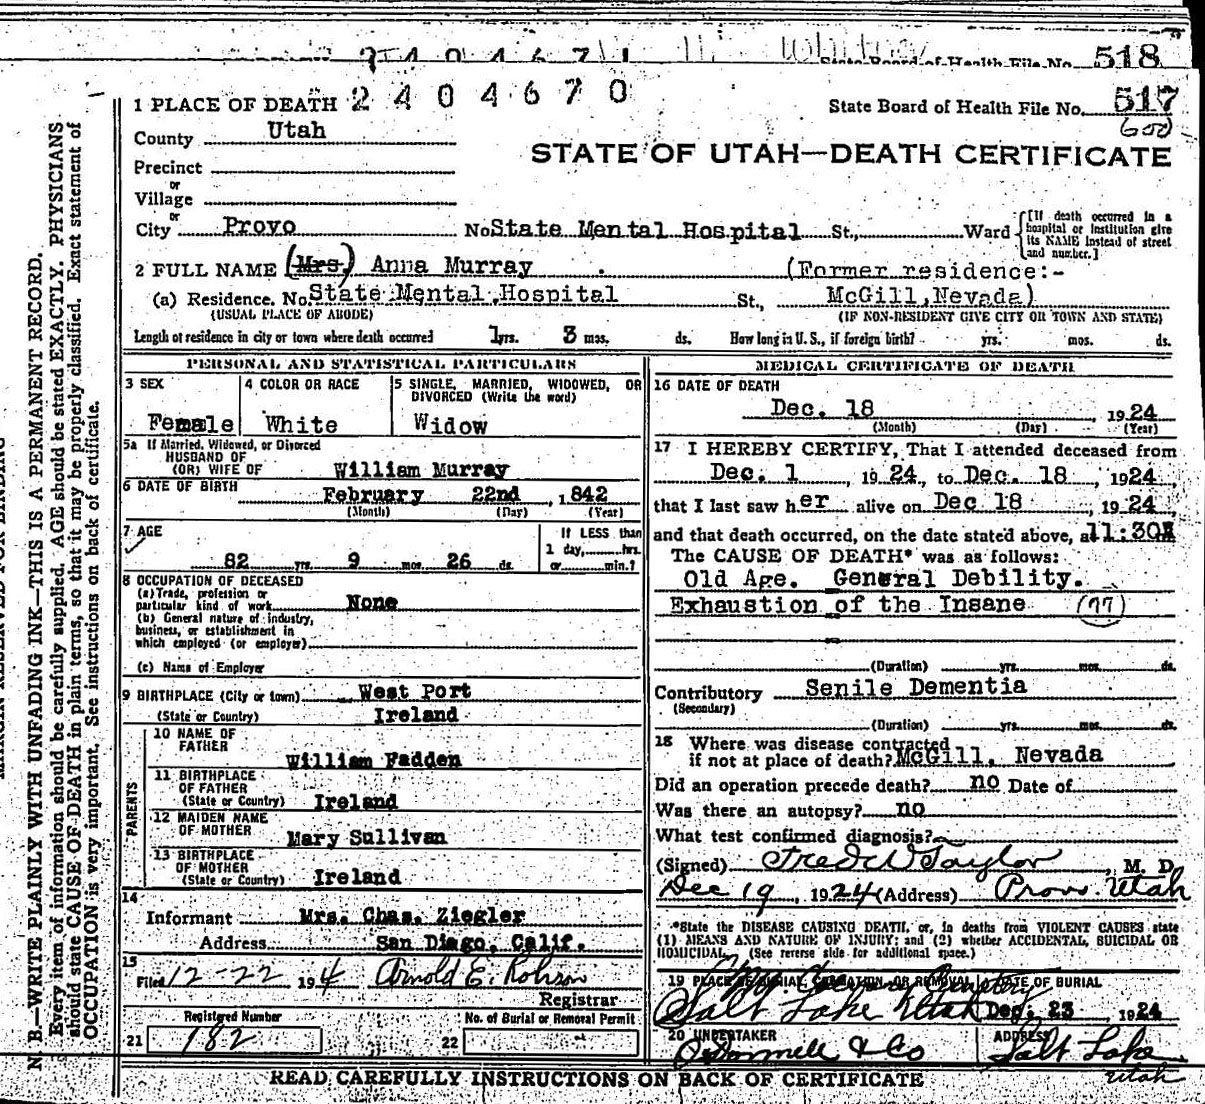 2404671
Whitney
State Board of Health File No. 518
1 PLACE OF DEATH 2404670
State Board of Health File No. 517
County Utah
STATE OF UTAH—DEATH CERTIFICATE
Precinct
or
Village
or
City Provo No. State Mental Hospital St., Ward [If death occurred in a hospital or institution give its NAME instead of street and number.]
2 FULL NAME (Mrs.) Anna Murray (Former residence:-
(a) Residence. No. State Mental Hospital St., McGill, Nevada)
(USUAL PLACE OF ABODE) (IF NON-RESIDENT GIVE CITY OR TOWN AND STATE)
Length of residence in city or town where death occurred 1 yrs. 3 mos. ds. How long in U. S., if foreign birth? yrs. mos. ds.
PERSONAL AND STATISTICAL PARTICULARS
3 SEX
Female
4 COLOR OR RACE
White
5 SINGLE, MARRIED, WIDOWED, OR
DIVORCED (Write the word)
Widow
5a If Married, Widowed, or Divorced
HUSBAND OF
(OR) WIFE OF William Murray
6 DATE OF BIRTH February 22nd, 1842
(Month) (Day) (Year)
7 AGE
82 yrs. 9 mos. 26 ds.
If LESS than
1 day, hrs.
or min.?
8 OCCUPATION OF DECEASED
(a) Trade, profession or
particular kind of work None
(b) General nature of industry,
business, or establishment in
which employed (or employer)
(c) Name of Employer
9 BIRTHPLACE (City or town) West Port
(State or Country) Ireland
PARENTS
10 NAME OF
FATHER
William Fadden
11 BIRTHPLACE
OF FATHER
(State or Country) Ireland
12 MAIDEN NAME
OF MOTHER
Mary Sullivan
13 BIRTHPLACE
OF MOTHER
(State or Country) Ireland
14
Informant Mrs. Chas. Ziegler
Address San Diego, Calif.
15
Filed 12-22 1924 Arnold E. Robison
Registrar
Registered Number
21 182
No. of Burial or Removal Permit
22
MEDICAL CERTIFICATE OF DEATH
16 DATE OF DEATH
Dec. 18 1924
(Month) (Day) (Year)
17 I HEREBY CERTIFY, That I attended deceased from
Dec. 1, 1924, to Dec. 18, 1924,
that I last saw her alive on Dec 18, 1924,
and that death occurred, on the date stated above, at 11:30A
The CAUSE OF DEATH* was as follows:
Old Age. General Debility.
Exhaustion of the Insane (77)
(Duration) yrs. mos. ds.
Contributory Senile Dementia
(Secondary)
(Duration) yrs. mos. ds.
18 Where was disease contracted
if not at place of death? McGill, Nevada
Did an operation precede death? no Date of
Was there an autopsy? no
What test confirmed diagnosis?
(Signed) Fred W Taylor, M. D.
Dec 19, 1924 (Address) Provo. Utah
*State the DISEASE CAUSING DEATH, or, in deaths from VIOLENT CAUSES state
(1) MEANS AND NATURE OF INJURY; and (2) whether ACCIDENTAL, SUICIDAL OR
HOMICIDAL. (See reverse side for additional space.)
19 PLACE OF BURIAL, CREMATION, OR REMOVAL DATE OF BURIAL
Salt Lake Utah Dec. 23 1924
20 UNDERTAKER
O'Donnell & Co
ADDRESS
Salt Lake
Utah
READ CAREFULLY INSTRUCTIONS ON BACK OF CERTIFICATE
N. B.—WRITE PLAINLY WITH UNFADING INK—THIS IS A PERMANENT RECORD.
Every item of information should be carefully supplied. AGE should be stated EXACTLY. PHYSICIANS
should state CAUSE OF DEATH in plain terms, so that it may be properly classified. Exact statement of
OCCUPATION is very important. See instructions on back of certificate.